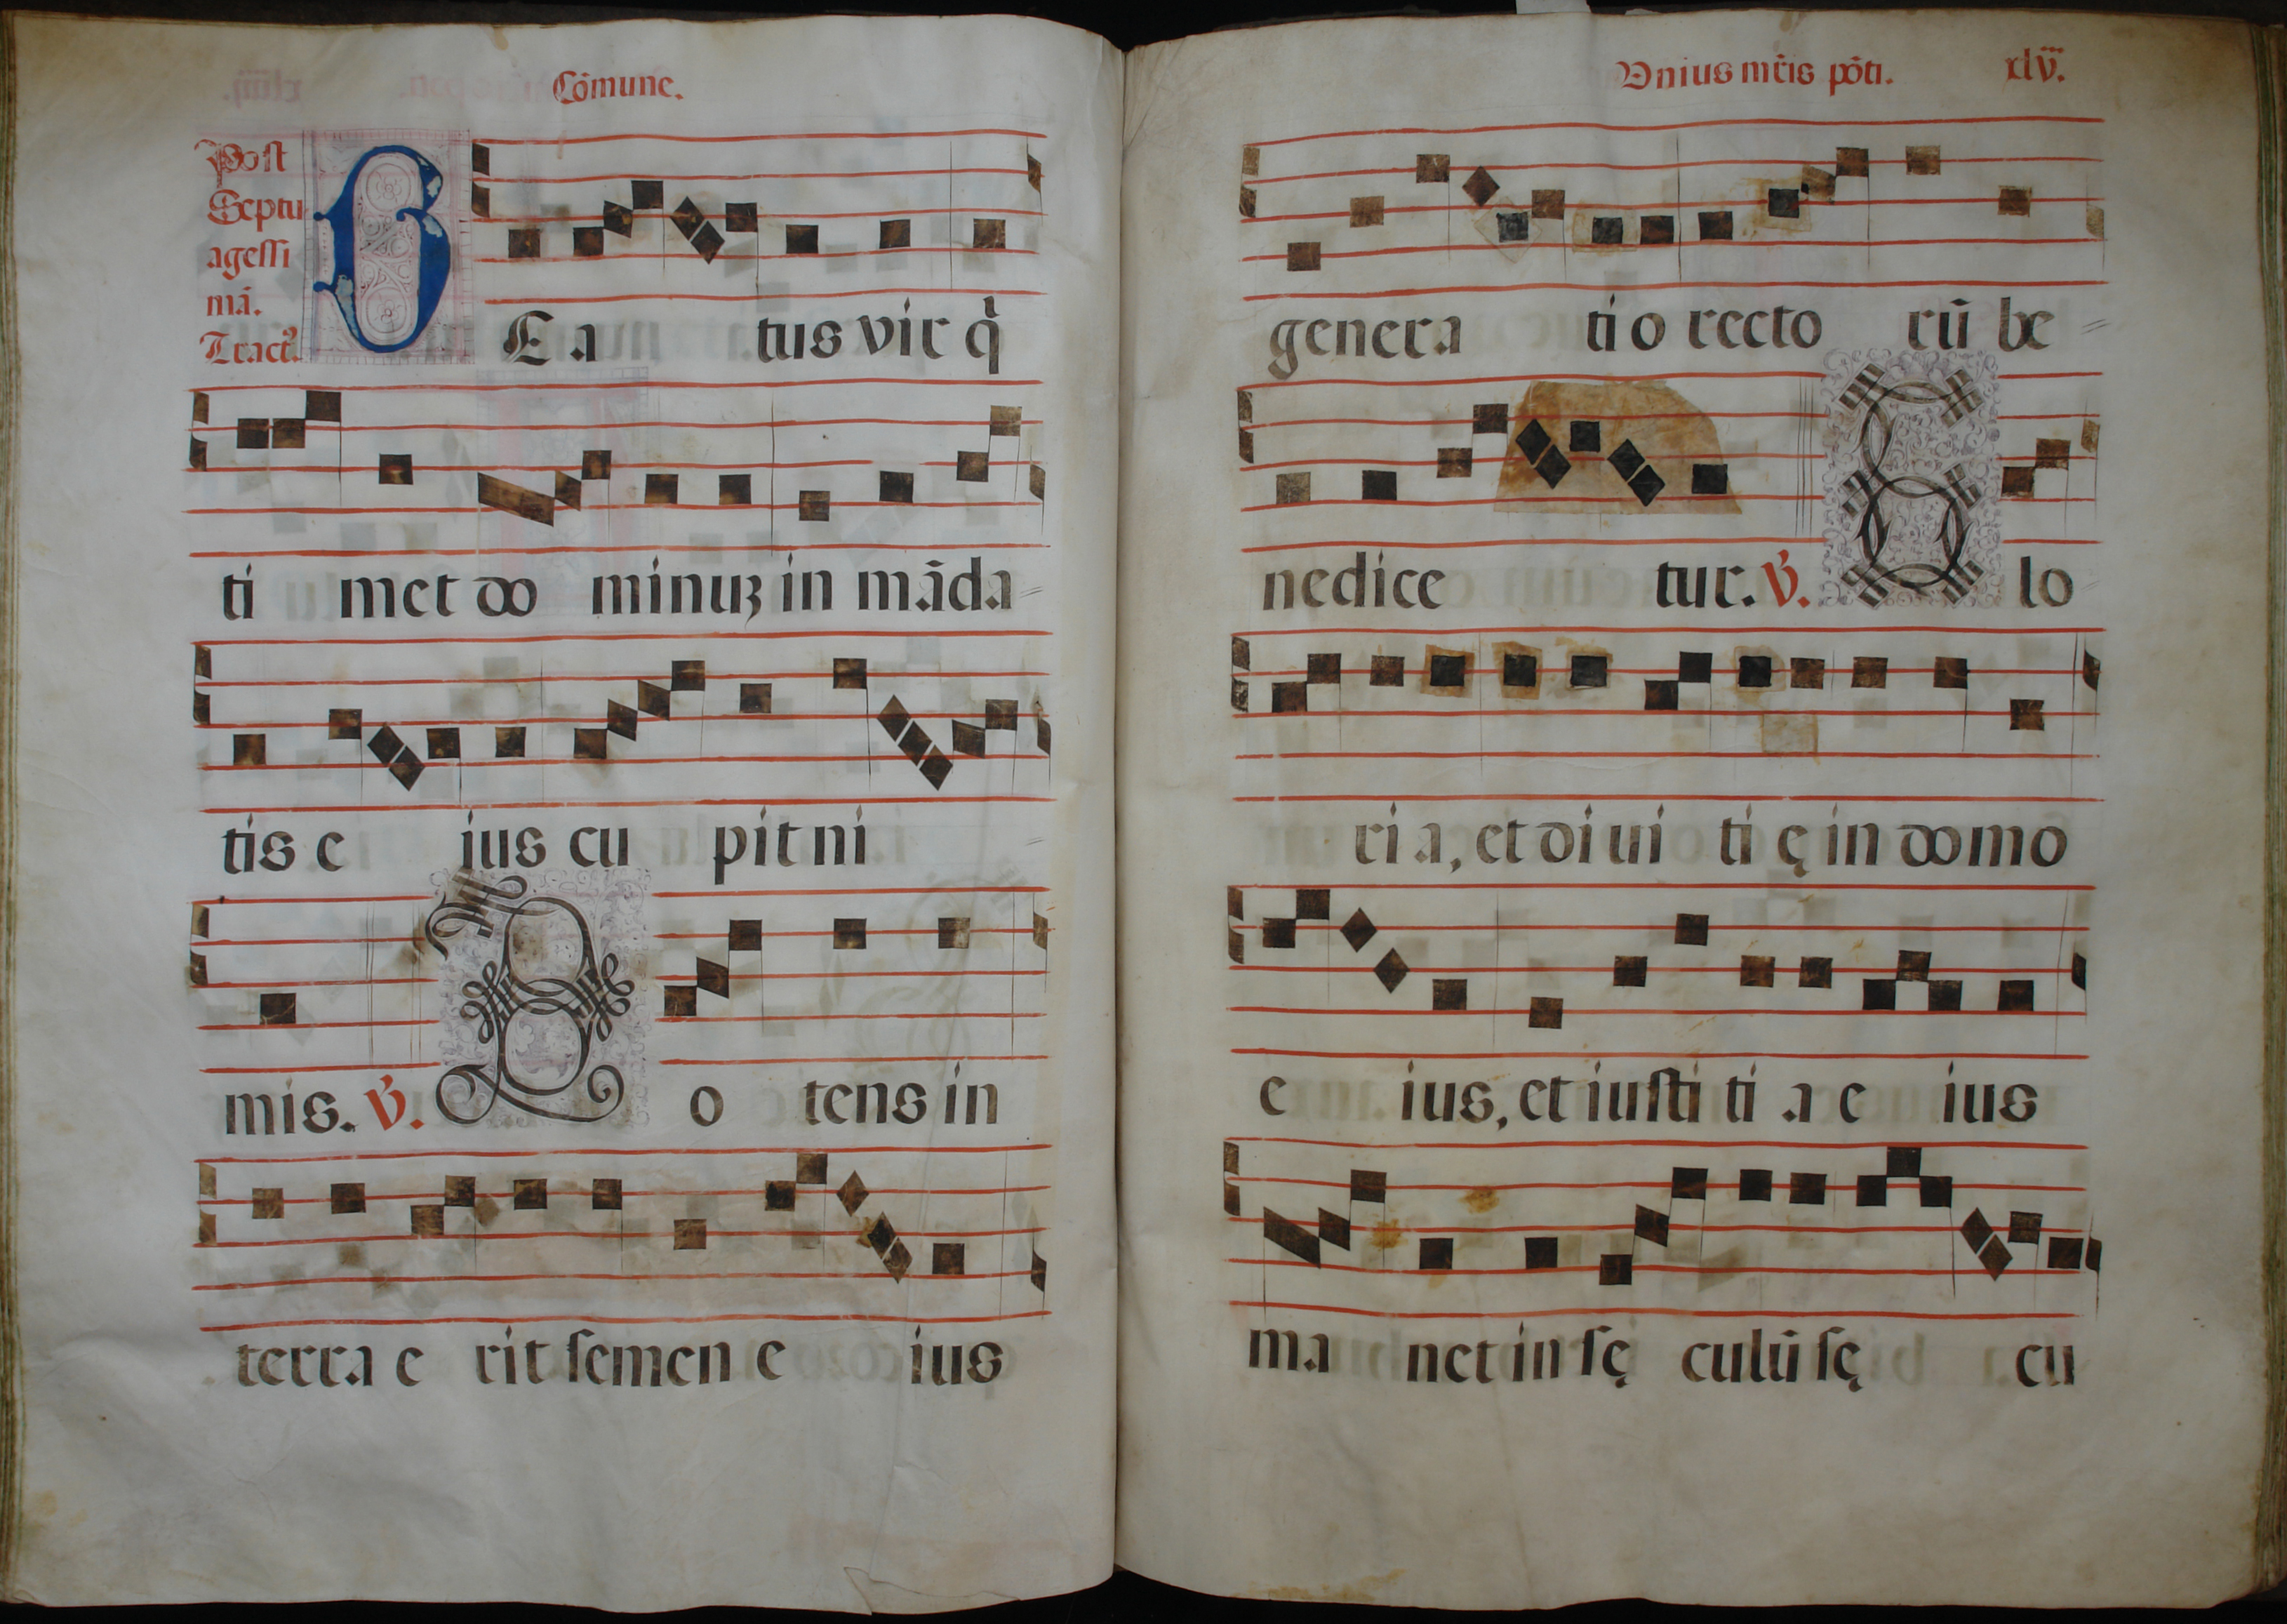 Cōmune.
Post
Septu
agessi
mā.
Tract⁹.
BE a tus vir q̇
ti met do minuʒ in māda
tis e ius cu pit ni
mis. ℣. Po tens in
terra e rit ſemen e ius
Vnius mr̄is pōti. xlv.
genera ti o recto rū be
nedice tur. ℣. Glo
ri a, et diui ti ę in domo
e ius, et iuſti ti a e ius
ma net in ſę culū ſę cu